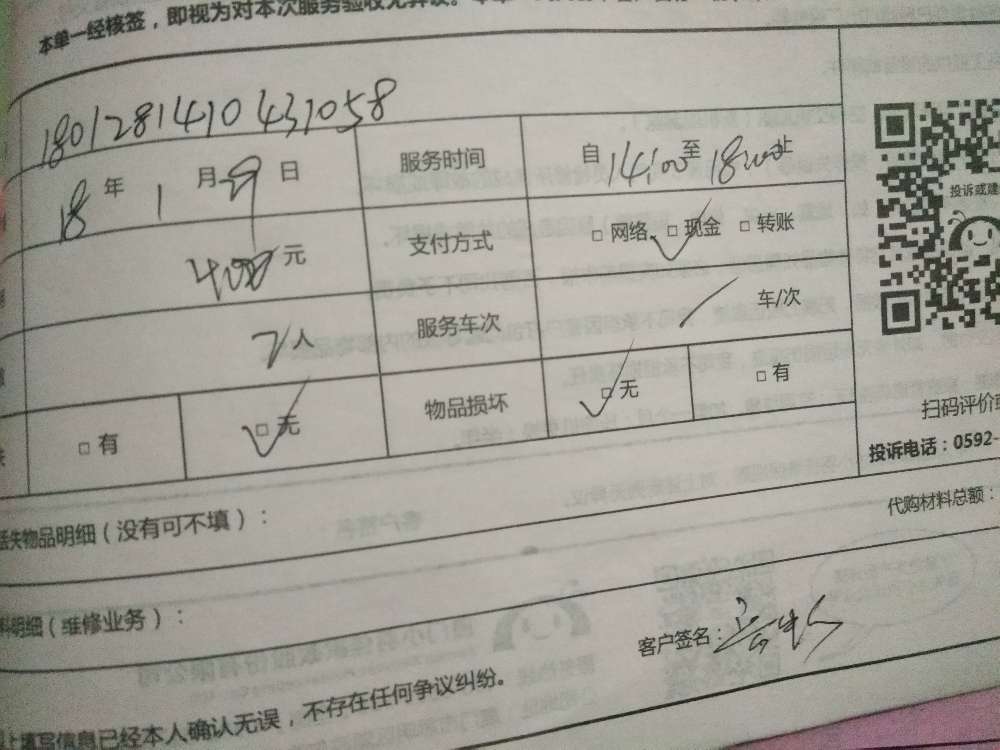 本单一经核签，即视为对本次服务验收无异议。
1801281410431058
18年1月29日 服务时间 自14:00至18:00止
400元 支付方式 □网络 □现金 □转账
2人 服务车次 车/次
□有 □无 物品损坏 □无 □有
投诉或建
扫码评价或
投诉电话：0592-
失物品明细（没有可不填）：
代购材料总额：
料明细（维修业务）：
客户签名：
上填写信息已经本人确认无误，不存在任何争议纠纷。